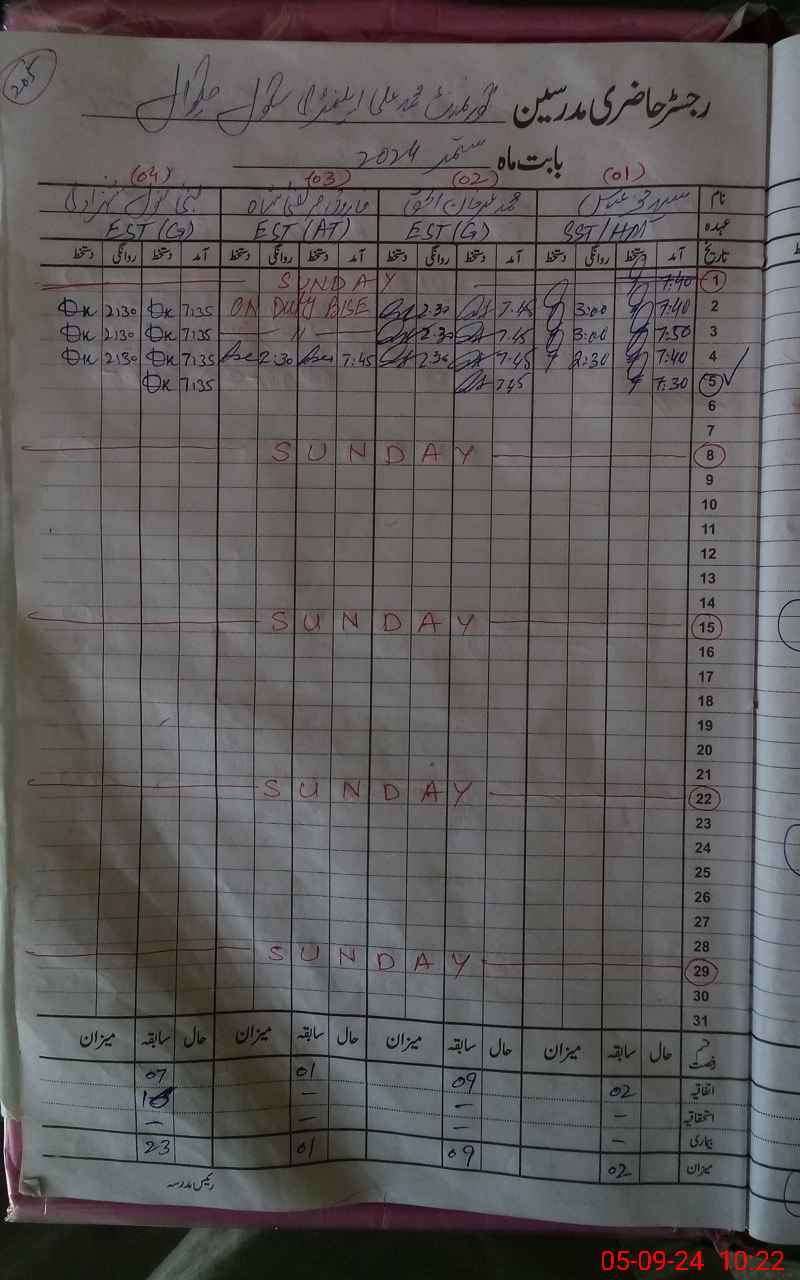 205
رجسٹر حاضری مدرسین گورنمنٹ محمد علی ایلیمنٹری سکول
بابت ماہ ستمبر 2024
(01) (02) (03) (04)
نام
عہدہ SST/HM EST(G) EST(AT) EST(G)
تاریخ آمد دستخط روانگی دستخط آمد دستخط روانگی دستخط آمد دستخط روانگی دستخط آمد دستخط روانگی دستخط
1 7:40 SUNDAY
2 7:40 3:00 7:45 2:30 ON Duty BISE 7:35 2:30
3 7:50 3:00 7:45 2:30 〃 7:35 2:30
4 7:40 2:30 7:45 2:30 7:45 2:30 7:35 2:30
5 7:30 7:45 7:35
6
7
8 SUNDAY
9
10
11
12
13
14
15 SUNDAY
16
17
18
19
20
21
22 SUNDAY
23
24
25
26
27
28
29 SUNDAY
30
31
قسم رخصت حال سابقہ میزان حال سابقہ میزان حال سابقہ میزان حال سابقہ میزان
اتفاقیہ 02 09 01 07
استحقاقیہ – – – 16
بیماری – – – –
میزان 02 09 01 23
رئیس مدرسہ
05-09-24 10:22